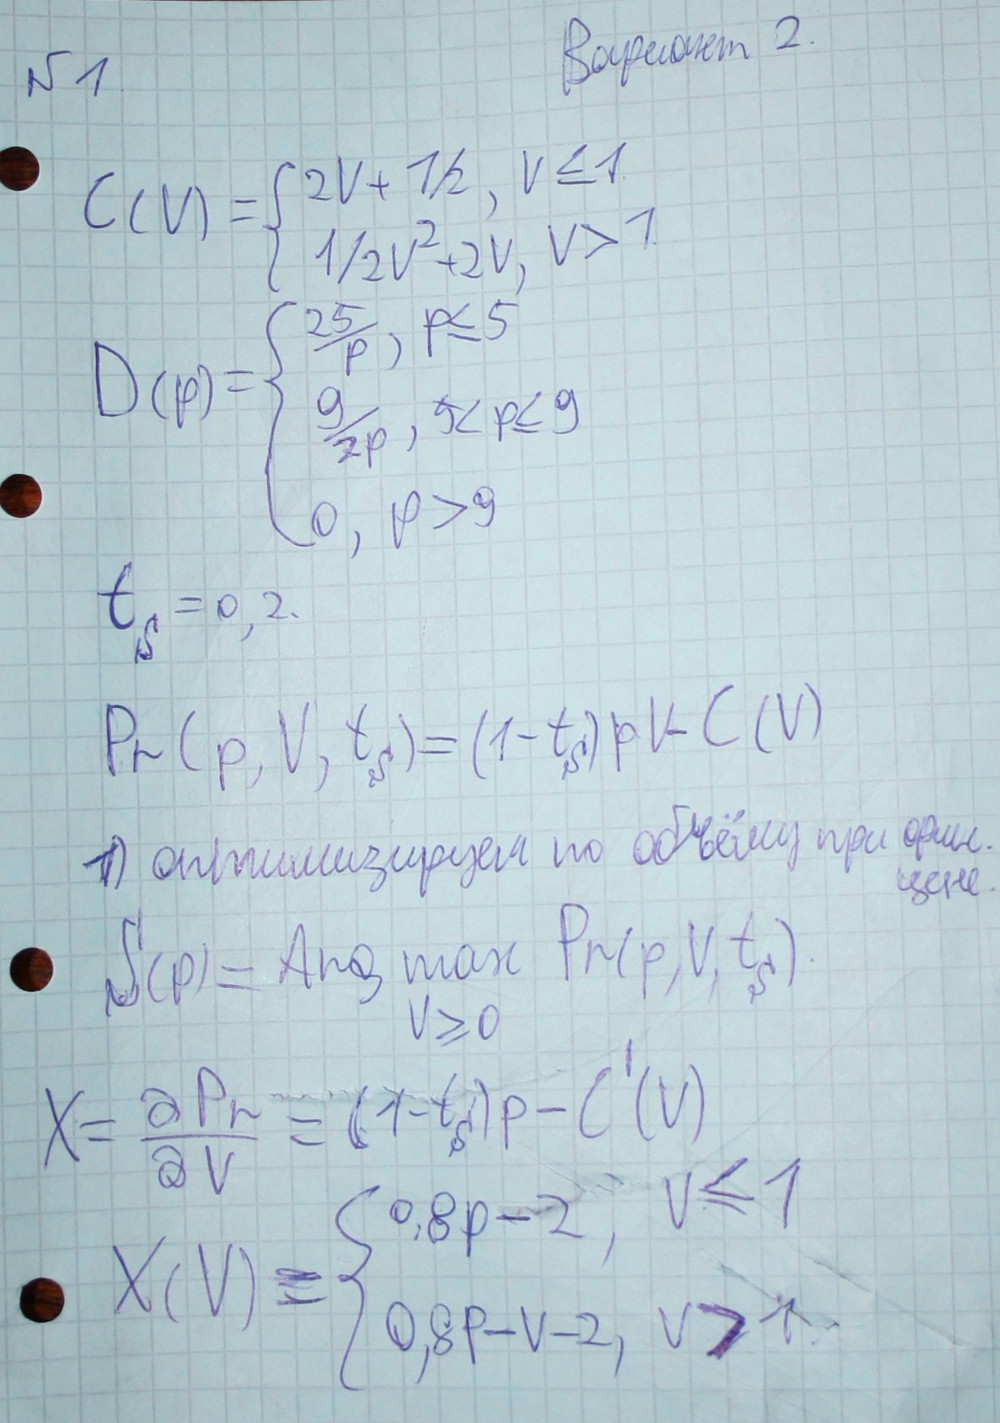 Вариант 2.
№1.
C(V) = { 2V + 1/2, V ≤ 1.
1/2V² + 2V, V > 1.
D(p) = { 25/p, p ≤ 5
9/2p, 5 < p ≤ 9
0, p > 9
t_s = 0,2.
Pr(p, V, t_s) = (1 - t_s)pV - C(V)
1) оптимизируем по объёму при фикс.
цене.
S(p) = Arg max Pr(p, V, t_s).
V ≥ 0
X = ∂Pr/∂V = (1 - t_s)p - C'(V)
X(V) = { 0,8p - 2, V ≤ 1
0,8p - V - 2, V > 1.